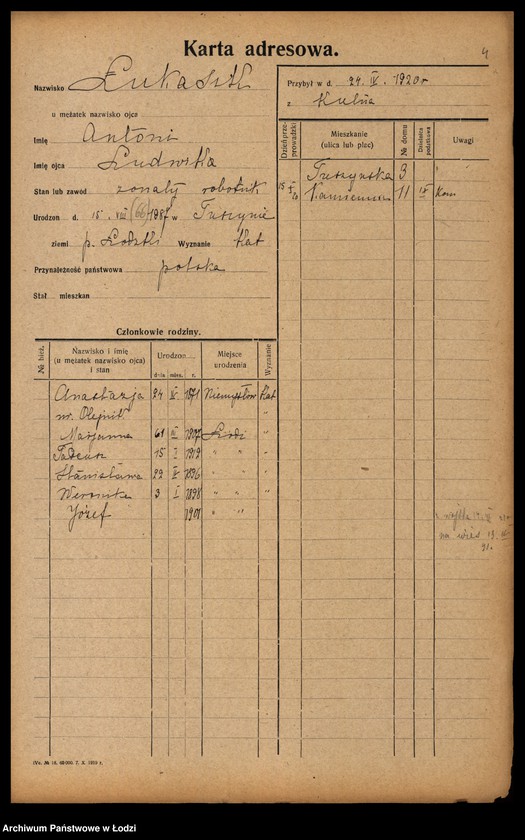 Karta adresowa.
4
Nazwisko
u mężatek nazwisko ojca
Imię Antoni
Imię ojca Ludwika
Stan lub zawód żonaty robotnik
Urodzon d. 15 VIII (66) w Tuszynie
ziemi p. Łódzki Wyznanie kat
Przynależność państwowa polska
Stał mieszkan
Przybył w d. 24. IV. 1920 r
z
Dzień przeprowadzki
Mieszkanie (ulica lub plac)
№ domu
Dzielnica podatkowa
Uwagi
Tuszyńska 3
Kamienna 11 IV Kom
Członkowie rodziny.
№ bież.
Nazwisko i imię (u mężatek nazwisko ojca) i stan
Urodzon....
dnia mies. r.
Miejsce urodzenia
Wyznanie
Anastazja 24 IV 1871 kat
Olejnik "
Marjanna III 1907 Łódź "
Tadeusz 15 I 1919 " " "
Stanisława 22 1896 " " "
Weronika 3 I 1898 " " "
Józef 1901 " "
na wieś
IVc. № 16. 60 000. 7. X. 1919 r.
Archiwum Państwowe w Łodzi